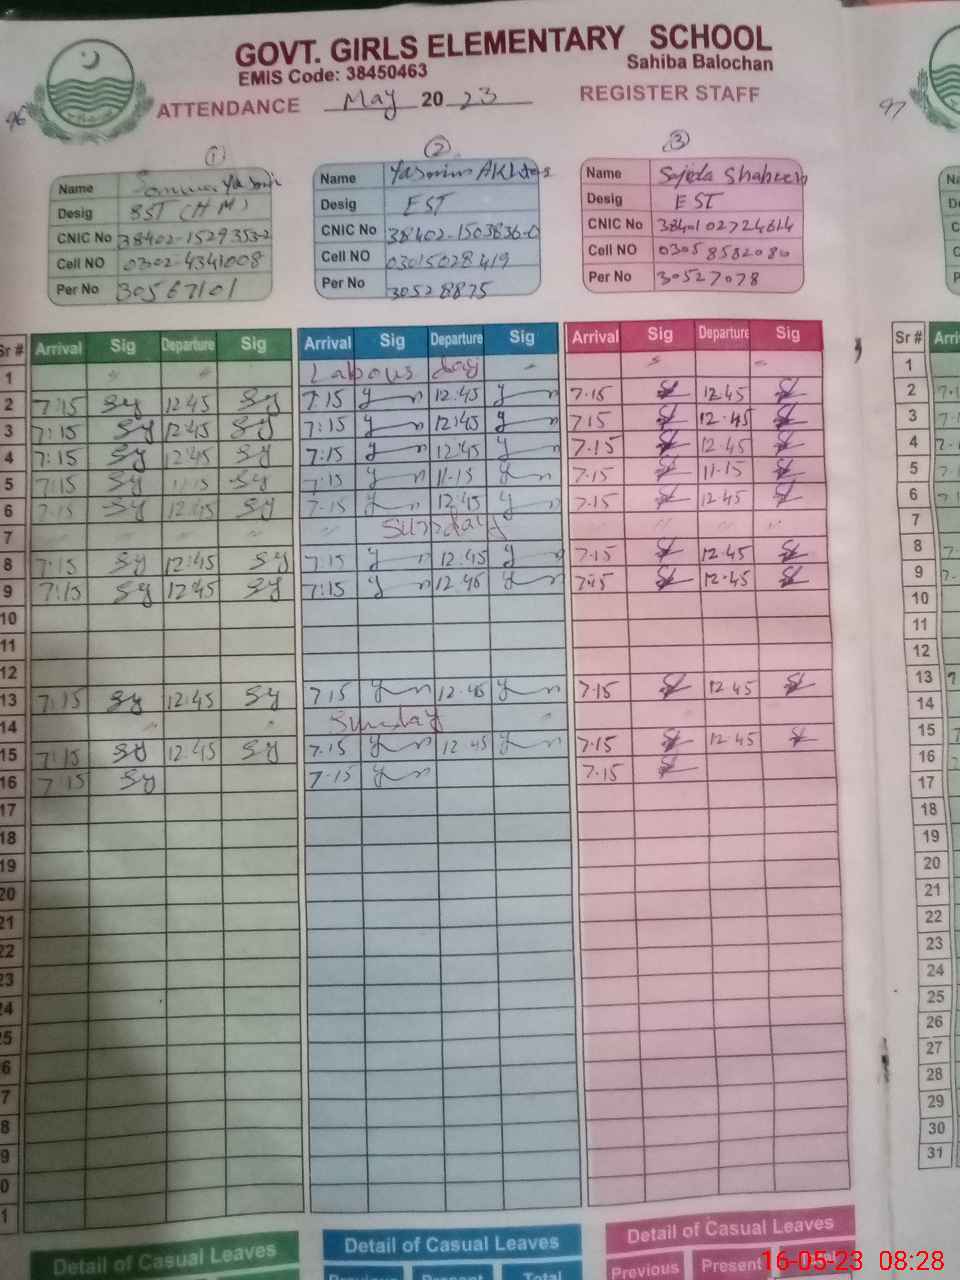 GOVT. GIRLS ELEMENTARY SCHOOL
EMIS Code: 38450463
Sahiba Balochan
96 ATTENDANCE May 2023 REGISTER STAFF 97
1 2 3
Name Yasmin
Desig SST (HM)
CNIC No 38402-1529353-2
Cell NO 0302-4341008
Per No 30567101
Name Yasmin Akhtar
Desig EST
CNIC No 38402-1503836-0
Cell NO 03015028419
Per No 30528875
Name Sajida Shaheen
Desig EST
CNIC No 3840102724614
Cell NO 0305 8582080
Per No 30527078
Sr # Arrival Sig Departure Sig Arrival Sig Departure Sig Arrival Sig Departure Sig Sr #
1 Labour day 1
2 7:15 Sy 12:45 Sy 7.15 12:45 7.15 12.45 2
3 7:15 Sy 12:45 Sy 7:15 12:45 7.15 12.45 3
4 7:15 Sy 12:45 Sy 7:15 12:45 7.15 12.45 4
5 7:15 Sy 11:15 Sy 7:15 11-15 7.15 11-15 5
6 7.15 Sy 12:45 Sy 7.15 12.45 7.15 12.45 6
7 Sunday 7
8 7:15 Sy 12:45 Sy 7:15 12.45 7.15 12.45 8
9 7:15 Sy 12:45 Sy 7:15 12.45 7:15 12.45 9
10 10
11 11
12 12
13 7:15 Sy 12:45 Sy 7.15 12.45 7.15 12.45 13
14 Sunday 14
15 7:15 Sy 12.45 Sy 7.15 12.45 7.15 12.45 15
16 7:15 Sy 7.15 7.15 16
17 17
18 18
19 19
20 20
21 21
22 22
23 23
24 24
25 25
26 26
27 27
28 28
29 29
30 30
31 31
Detail of Casual Leaves Detail of Casual Leaves Detail of Casual Leaves
Previous Present Total Previous Present
16-05-23 08:28